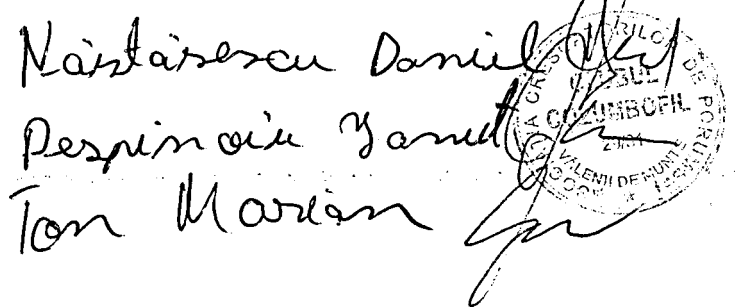 Năstăsescu Daniel
Despinoiu Ionuț
Ion Marian
CLUBUL
COLUMBOFIL
VALENII DE MUNTE